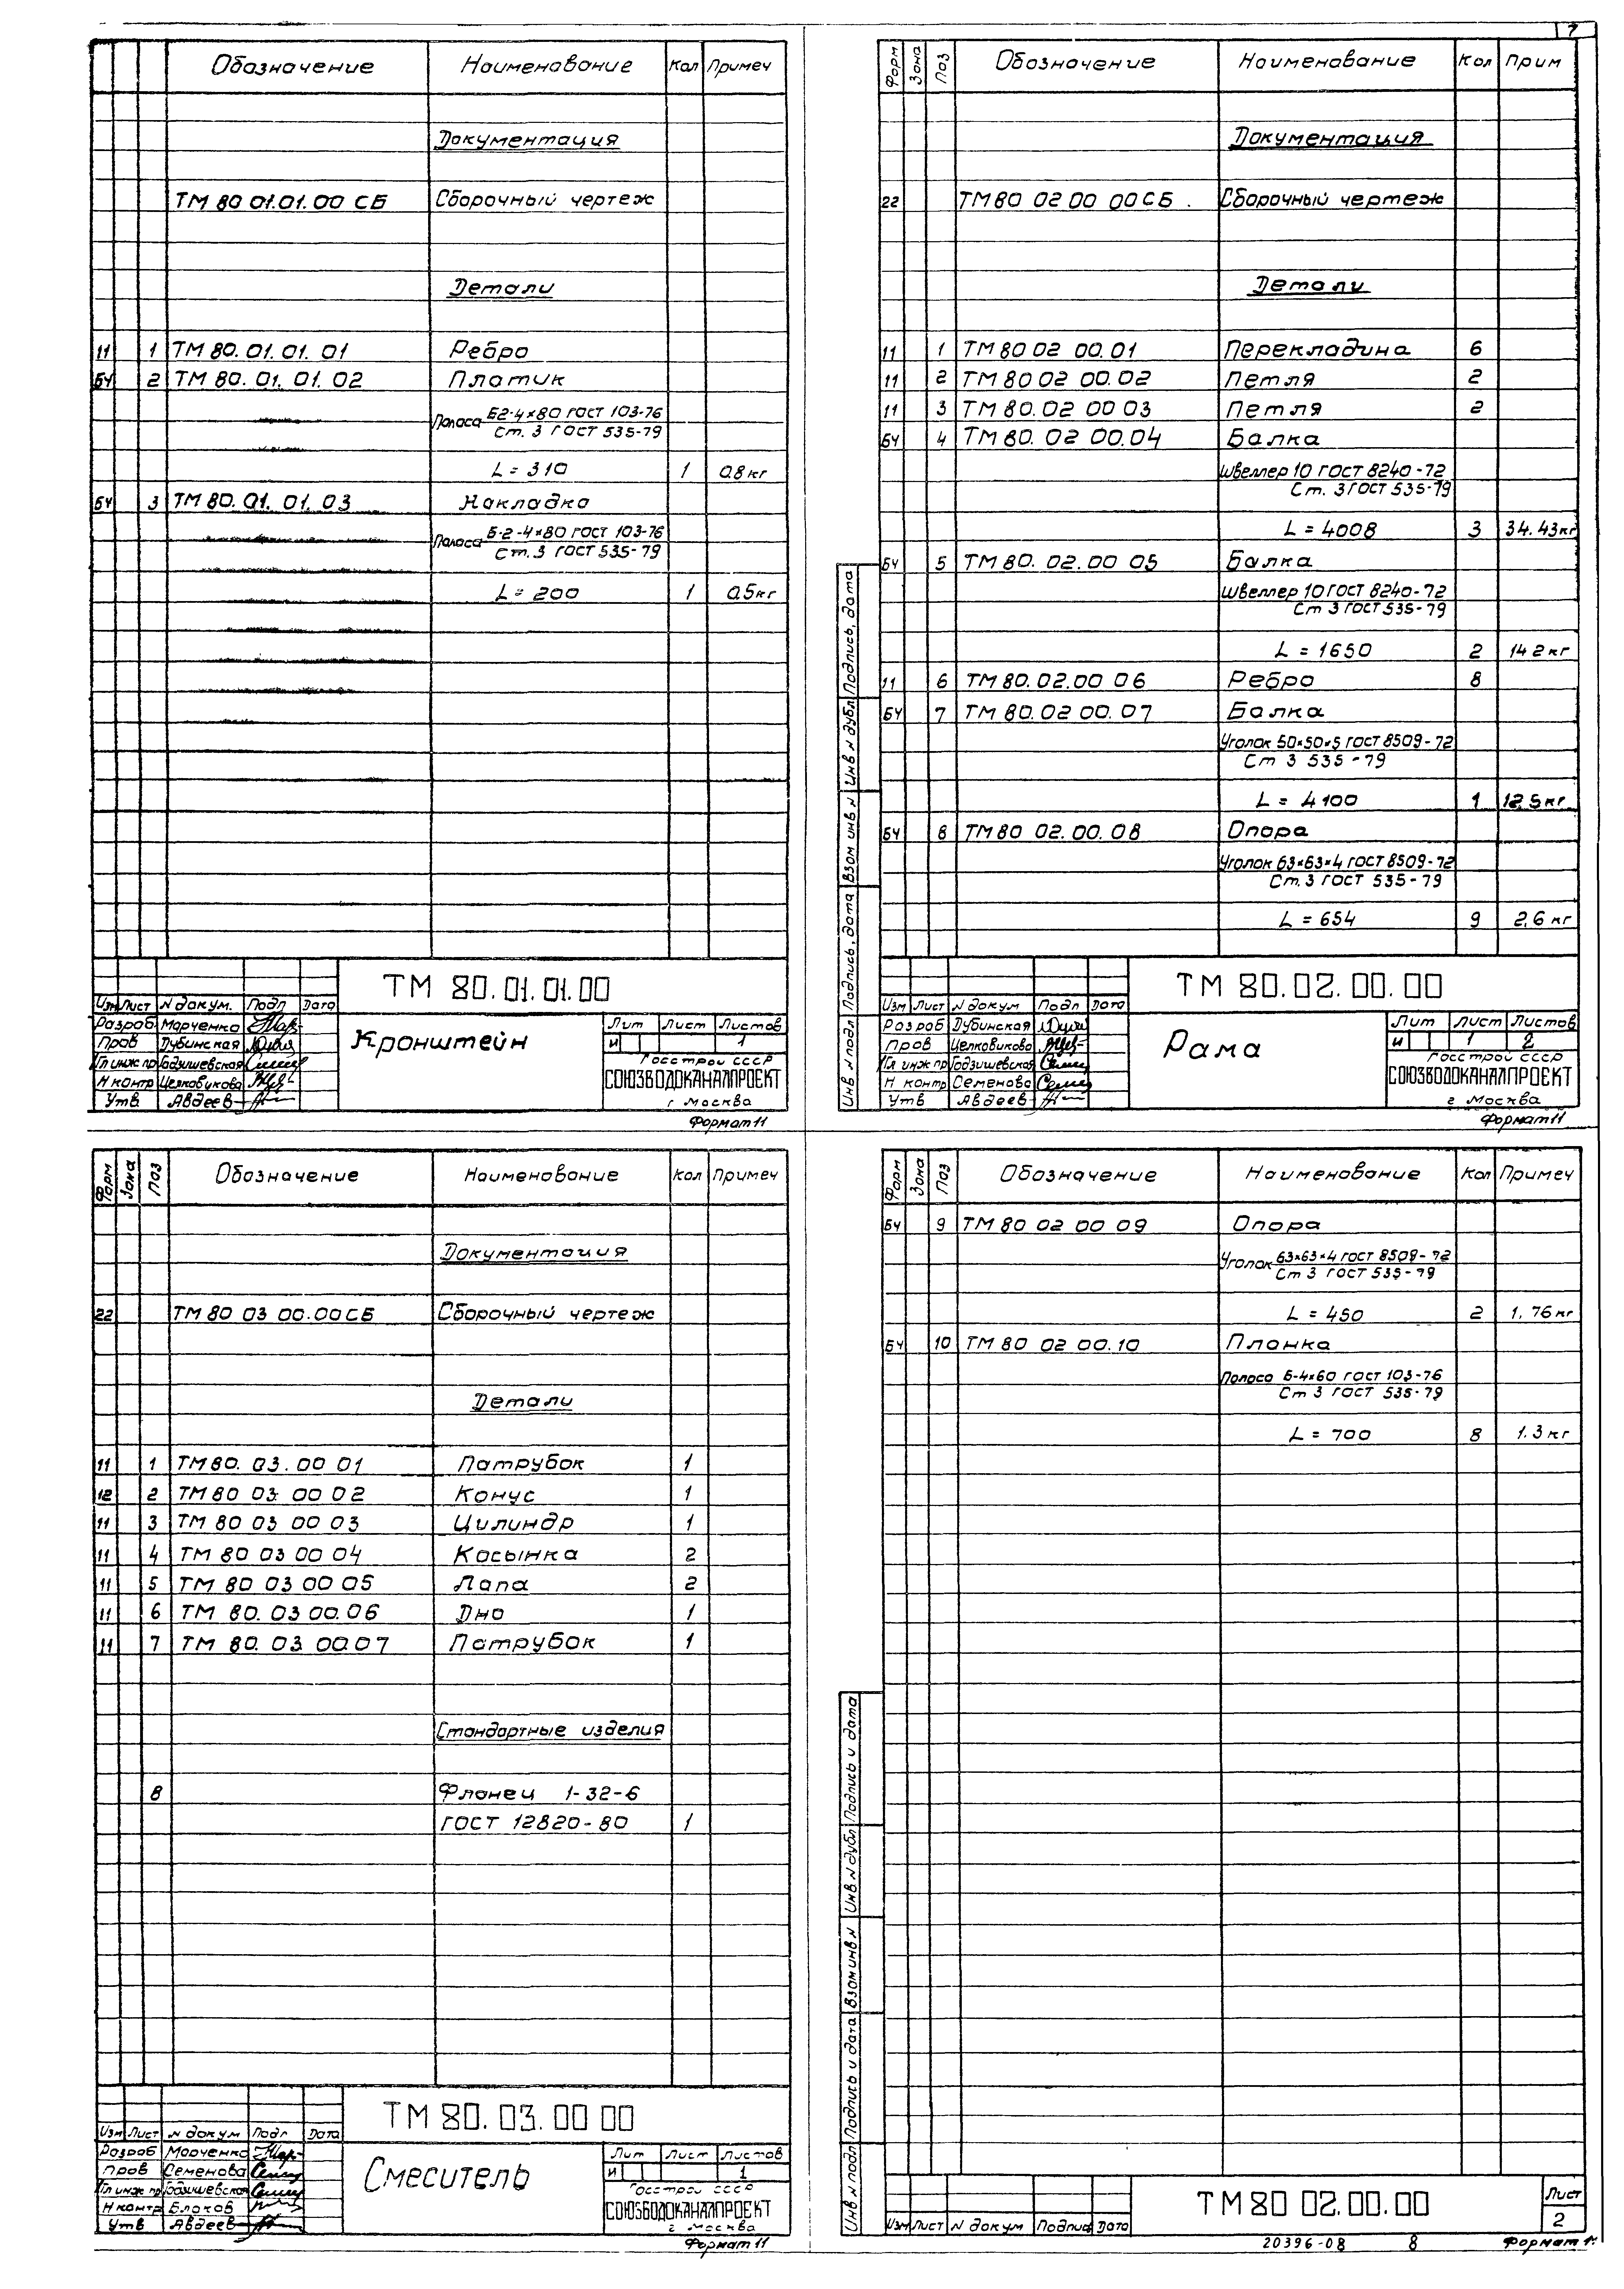 7
Обозначение Наименование Кол Примеч
Документация
ТМ 80 01.01.00 СБ Сборочный чертеж
Детали
11 1 ТМ 80.01.01.01 Ребро
БЧ 2 ТМ 80.01.01.02 Платик
Полоса Б2-4×80 ГОСТ 103-76
Ст. 3 ГОСТ 535-79
L = 310 1 0.8 кг
БЧ 3 ТМ 80.01.01.03 Накладка
Полоса Б-2-4×80 ГОСТ 103-76
Ст. 3 ГОСТ 535-79
L = 200 1 0.5 кг
ТМ 80.01.01.00
Изм Лист N докум. Подп Дата
Разраб Марченко
Пров Дубинская
Гл инж пр Годзишевская
Н контр Целковикова
Утв. Авдеев
Кронштейн
Лит Лист Листов
И 1
Госстрой СССР
СОЮЗВОДОКАНАЛПРОЕКТ
г Москва
Формат 11
Форм Зона Поз Обозначение Наименование Кол Прим
Документация
22 ТМ 80 02 00 00 СБ. Сборочный чертеж
Детали
11 1 ТМ 80 02 00.01 Перекладина 6
11 2 ТМ 80 02 00.02 Петля 2
11 3 ТМ 80.02 00 03 Петля 2
БЧ 4 ТМ 80.02 00.04 Балка
Швеллер 10 ГОСТ 8240-72
Ст. 3 ГОСТ 535-79
L = 4008 3 34.43 кг
БЧ 5 ТМ 80.02.00 05 Балка
Швеллер 10 ГОСТ 8240-72
Ст 3 ГОСТ 535-79
L = 1650 2 14 2 кг
11 6 ТМ 80.02.00 06 Ребро 8
БЧ 7 ТМ 80.02 00.07 Балка
Уголок 50×50×5 ГОСТ 8509-72
Ст 3 535-79
L = 4100 1 12.5 кг
БЧ 8 ТМ 80 02.00.08 Опора
Уголок 63×63×4 ГОСТ 8509-72
Ст. 3 ГОСТ 535-79
L = 654 9 2.6 кг
Инв N подл Подпись, дата Взам инв N Инв N дубл Подпись, дата
ТМ 80.02.00.00
Изм Лист N докум Подп Дата
Разраб Дубинская
Пров Целковикова
Гл инж пр Годзишевская
Н контр Семенова
Утв Авдеев
Рама
Лит Лист Листов
И 1 2
Госстрой СССР
СОЮЗВОДОКАНАЛПРОЕКТ
г Москва
Формат 11
Форм Зона Поз Обозначение Наименование Кол Примеч
Документация
22 ТМ 80 03 00.00 СБ Сборочный чертеж
Детали
11 1 ТМ 80. 03. 00 01 Патрубок 1
12 2 ТМ 80 03 00 02 Конус 1
11 3 ТМ 80 03 00 03 Цилиндр 1
11 4 ТМ 80 03 00 04 Косынка 2
11 5 ТМ 80 03 00 05 Лапа 2
11 6 ТМ 80. 03 00. 06 Дно 1
11 7 ТМ 80. 03 00.07 Патрубок 1
Стандартные изделия
8 Фланец 1-32-6
ГОСТ 12820-80 1
ТМ 80.03.00 00
Изм Лист N докум Подп Дата
Разраб Марченко
Пров Семенова
Гл инж пр Годзишевская
Н контр Блохов
Утв Авдеев
Смеситель
Лит Лист Листов
И 1
Госстрой СССР
СОЮЗВОДОКАНАЛПРОЕКТ
г Москва
Формат 11
Форм Зона Поз Обозначение Наименование Кол Примеч
БЧ 9 ТМ 80 02 00 09 Опора
Уголок 63×63×4 ГОСТ 8509-72
Ст 3 ГОСТ 535-79
L = 450 2 1.76 кг
БЧ 10 ТМ 80 02 00.10 Планка
Полоса Б-4×60 ГОСТ 103-76
Ст 3 ГОСТ 535-79
L = 700 8 1.3 кг
Инв N подл Подпись и дата Взам инв N Инв N дубл Подпись и дата
Изм Лист N докум Подпись Дата
ТМ 80 02.00.00
Лист
2
20396-08 8 Формат 11